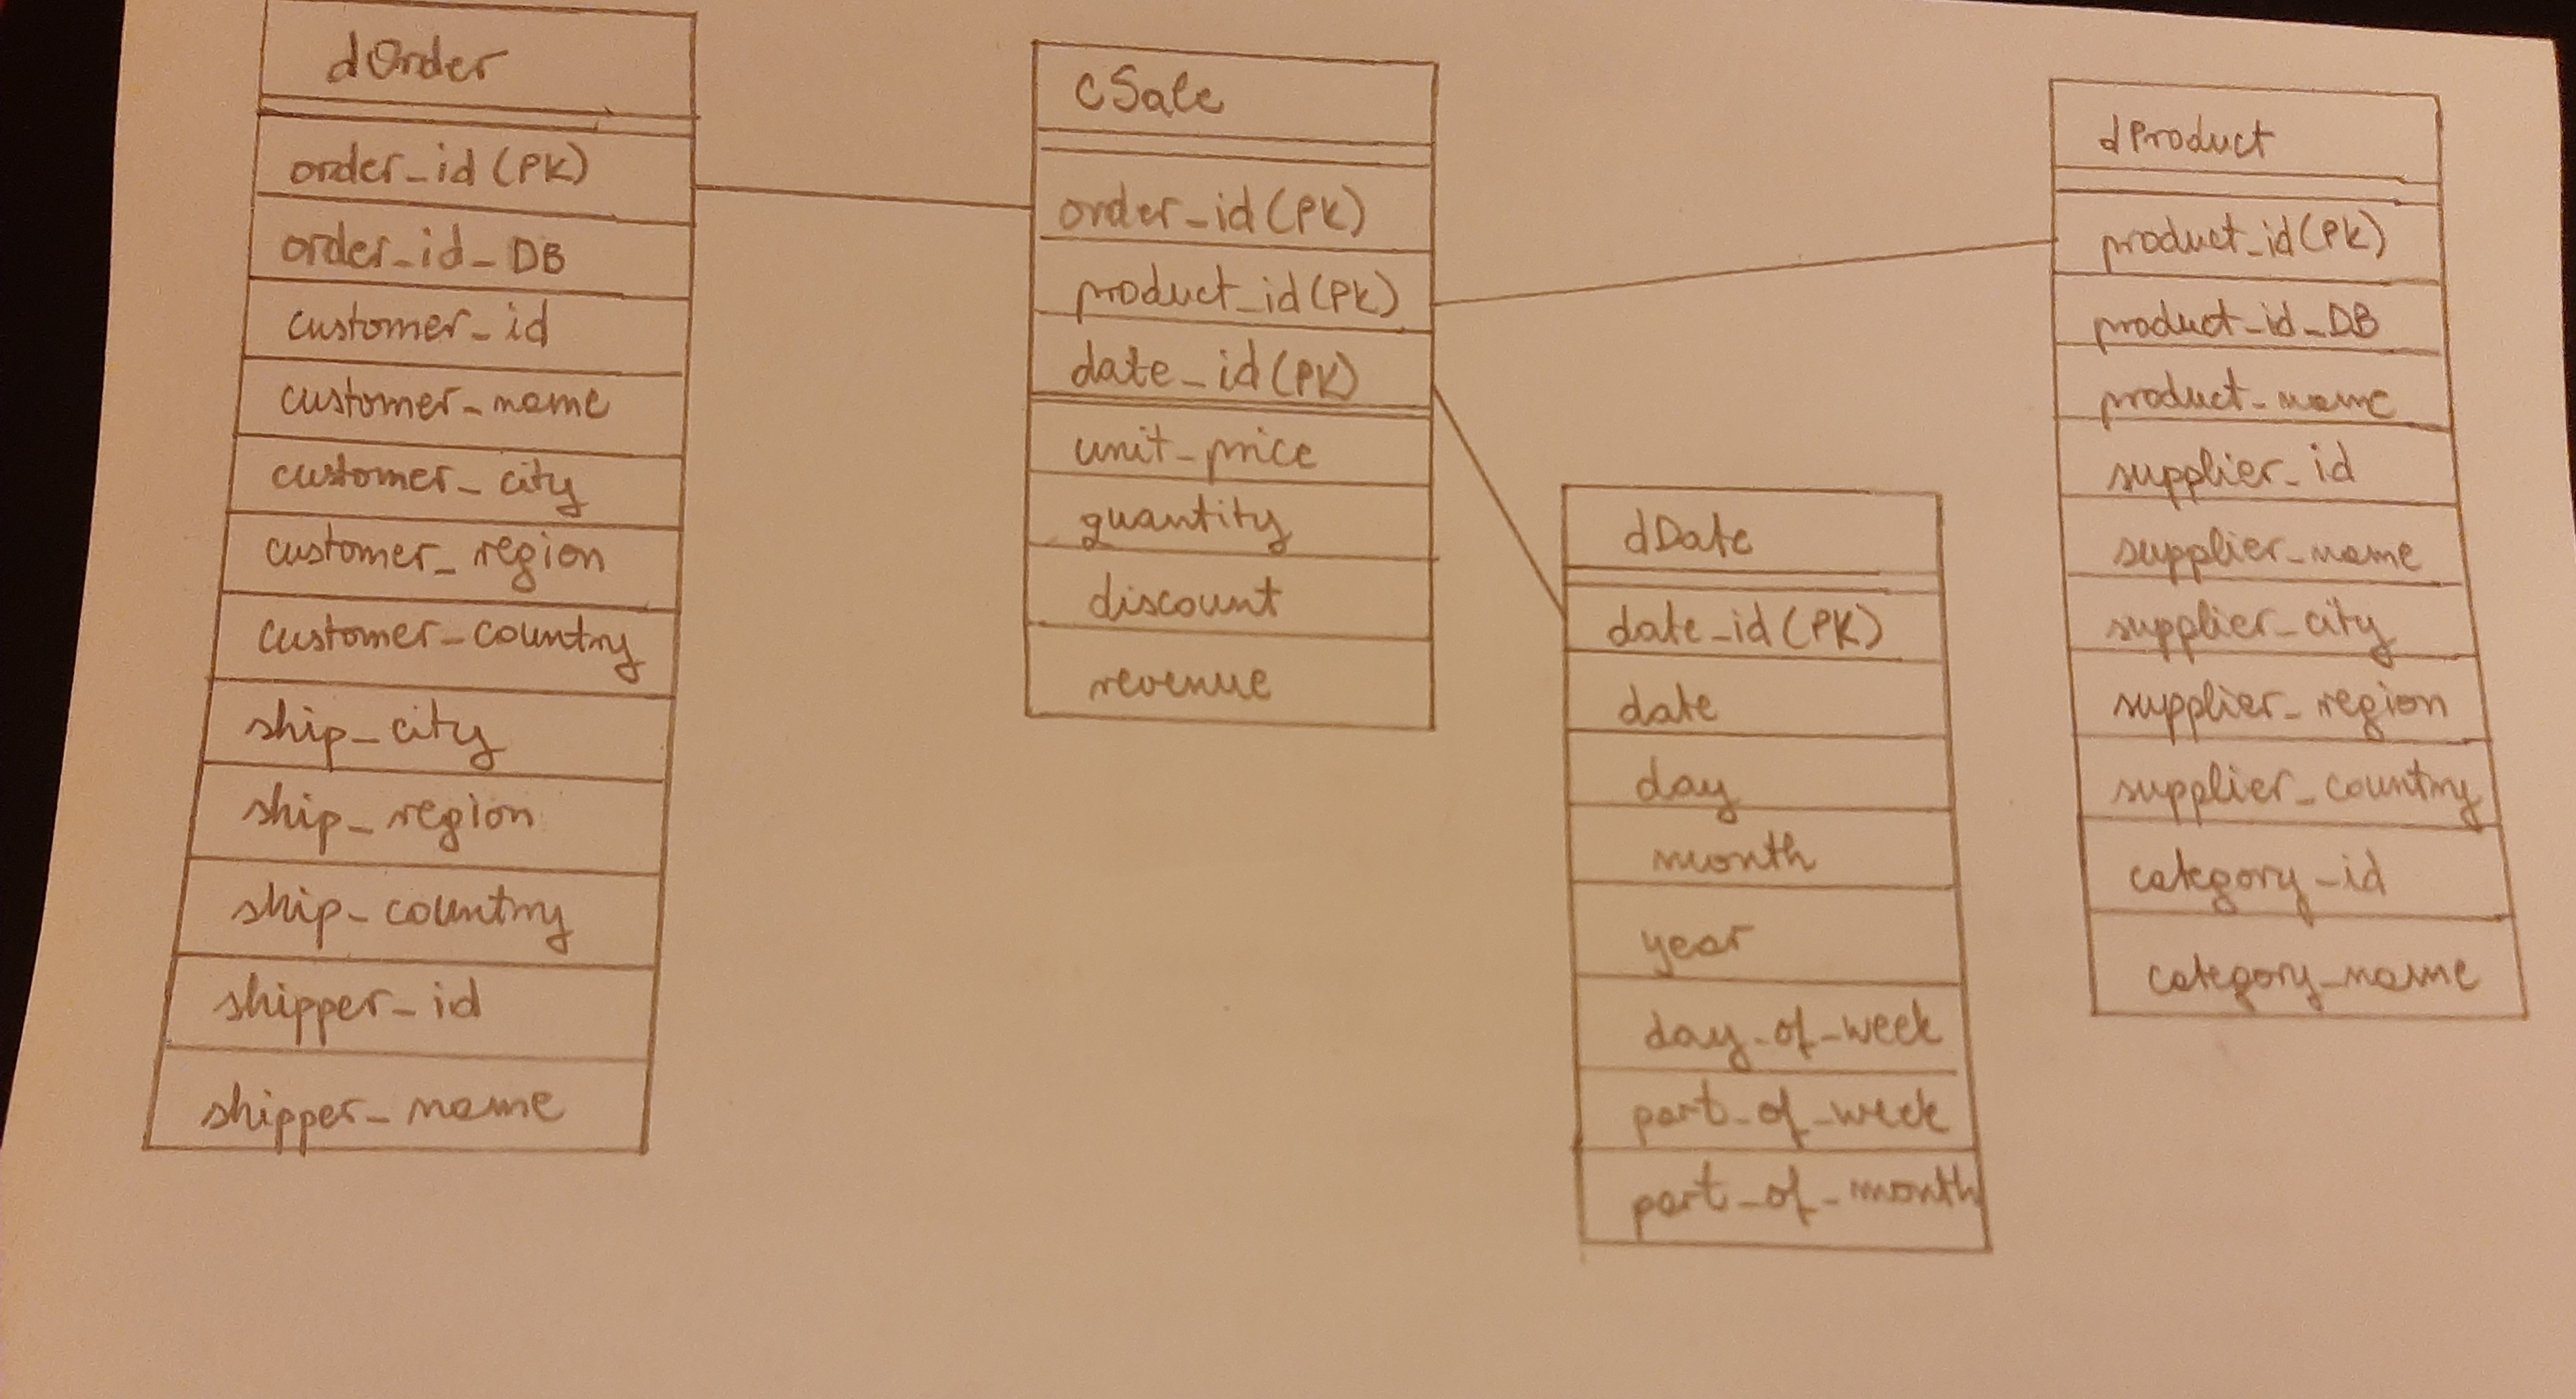 dOrder
order_id (PK)
order_id_DB
customer_id
customer_name
customer_city
customer_region
customer_country
ship_city
ship_region
ship_country
shipper_id
shipper_name
cSale
order_id (PK)
product_id (PK)
date_id (PK)
unit_price
quantity
discount
revenue
dDate
date_id (PK)
date
day
month
year
day_of_week
part_of_week
part_of_month
dProduct
product_id (PK)
product_id_DB
product_name
supplier_id
supplier_name
supplier_city
supplier_region
supplier_country
category_id
category_name